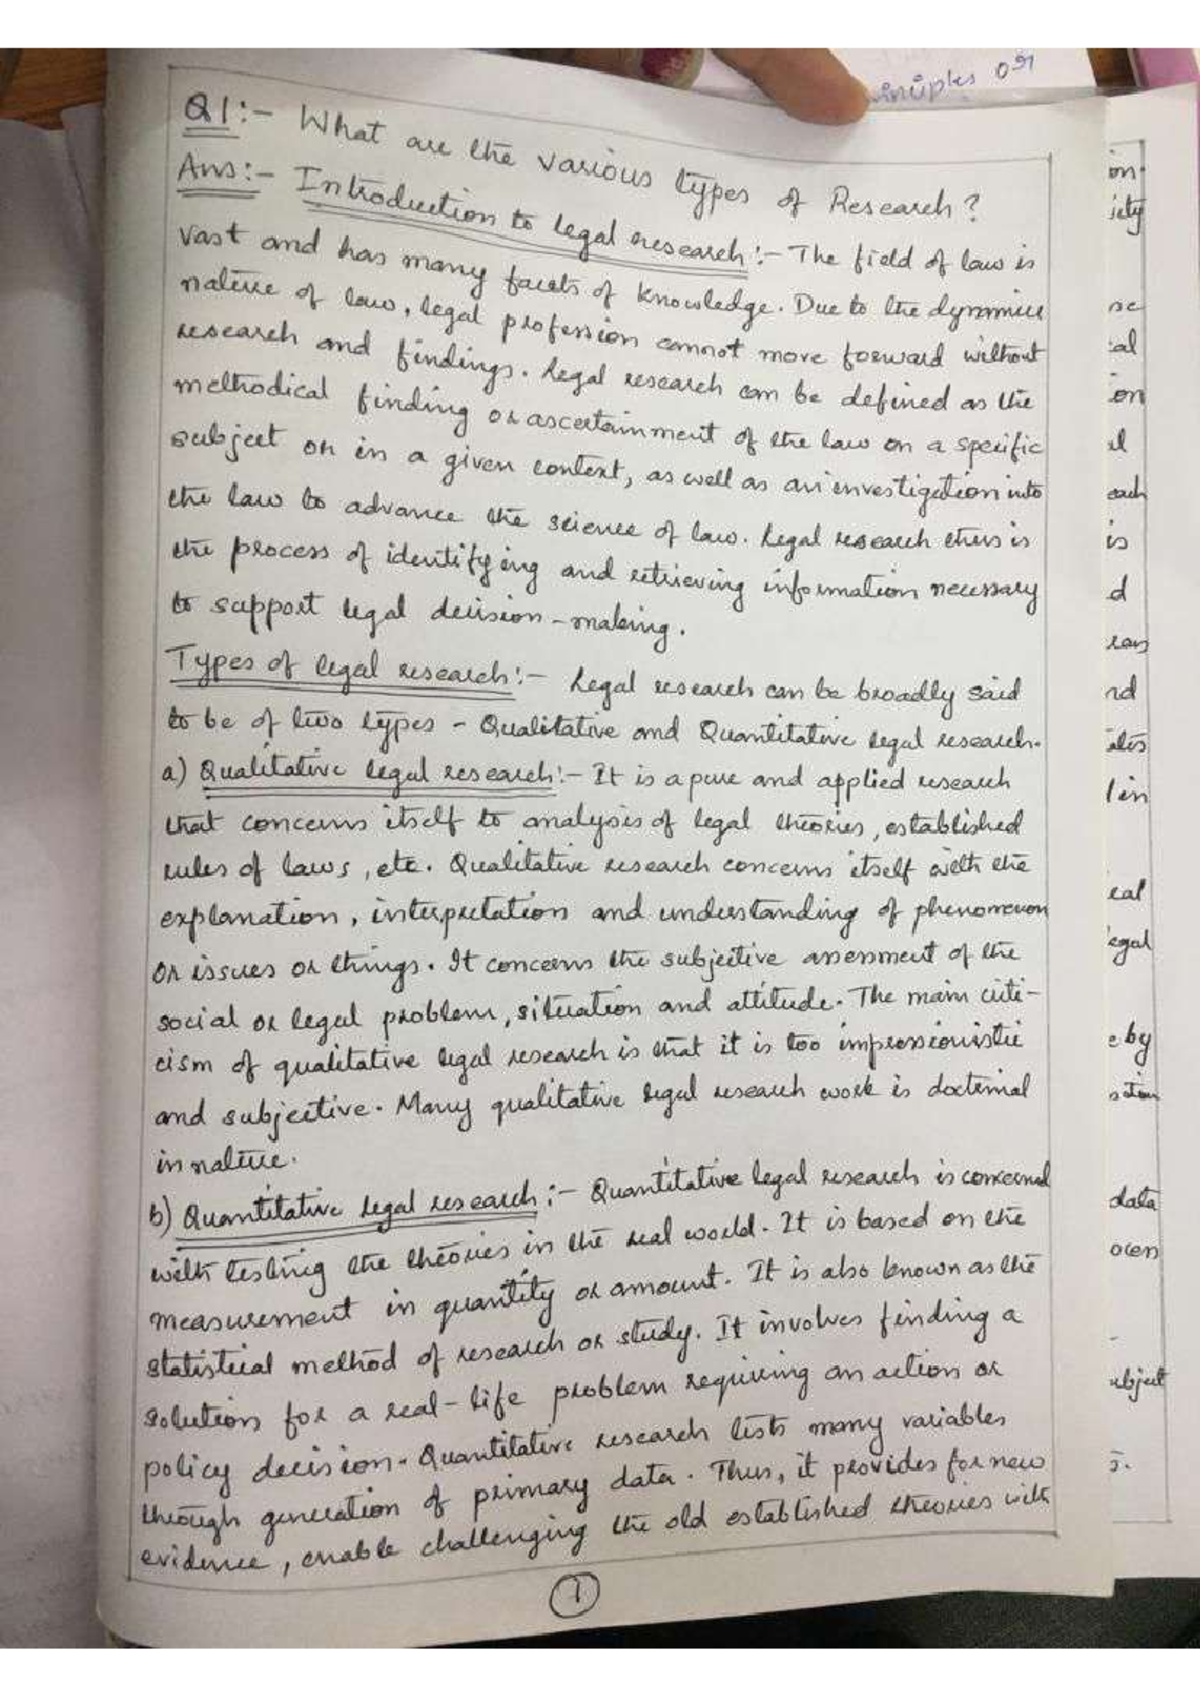 inciples or
Q1:- What are the various types of Research?
Ans:- Introduction to legal research:- The field of law is
vast and has many facets of knowledge. Due to the dynamic
nature of law, legal profession cannot move forward without
research and findings. Legal research can be defined as the
methodical finding or ascertainment of the law on a specific
subject or in a given context, as well as an investigation into
the law to advance the science of law. Legal research thus is
the process of identifying and retrieving information necessary
to support legal decision-making.
Types of legal research:- Legal research can be broadly said
to be of two types - Qualitative and Quantitative legal research.
a) Qualitative legal research:- It is a pure and applied research
that concerns itself to analysis of legal theories, established
rules of laws, etc. Qualitative research concerns itself with the
explanation, interpretation and understanding of phenomenon
or issues or things. It concerns the subjective assessment of the
social or legal problem, situation and attitude. The main criti-
cism of qualitative legal research is that it is too impressionistic
and subjective. Many qualitative legal research work is doctrinal
in nature.
b) Quantitative legal research:- Quantitative legal research is concerned
with testing the theories in the real world. It is based on the
measurement in quantity or amount. It is also known as the
statistical method of research or study. It involves finding a
solution for a real-life problem requiring an action or
policy decision. Quantitative research lists many variables
through generation of primary data. Thus, it provides for new
evidence, enable challenging the old established theories with
1
on.
iety
se
al
on
al
each
is
d
nd
in
eal
egal
e by
data
ubject
s.